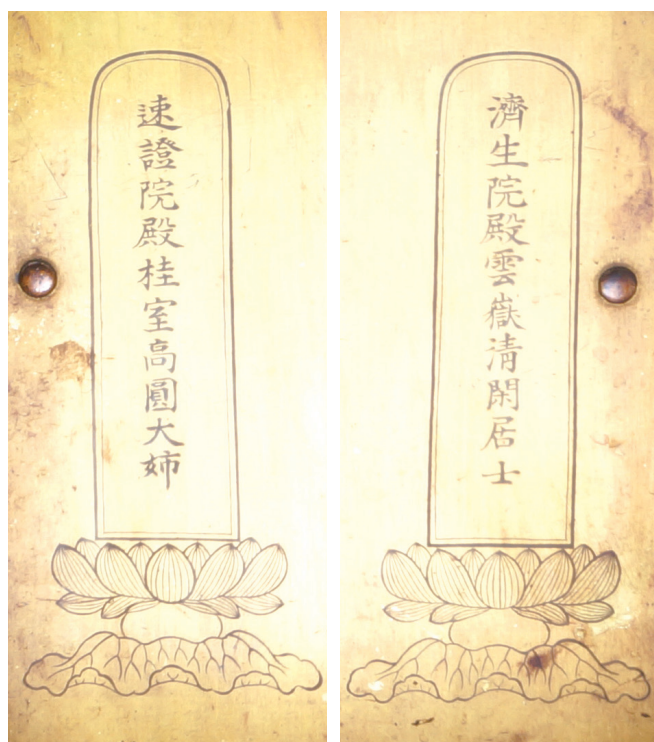 濟生院殿雲嶽淸閑居士
速證院殿桂室高圓大姉